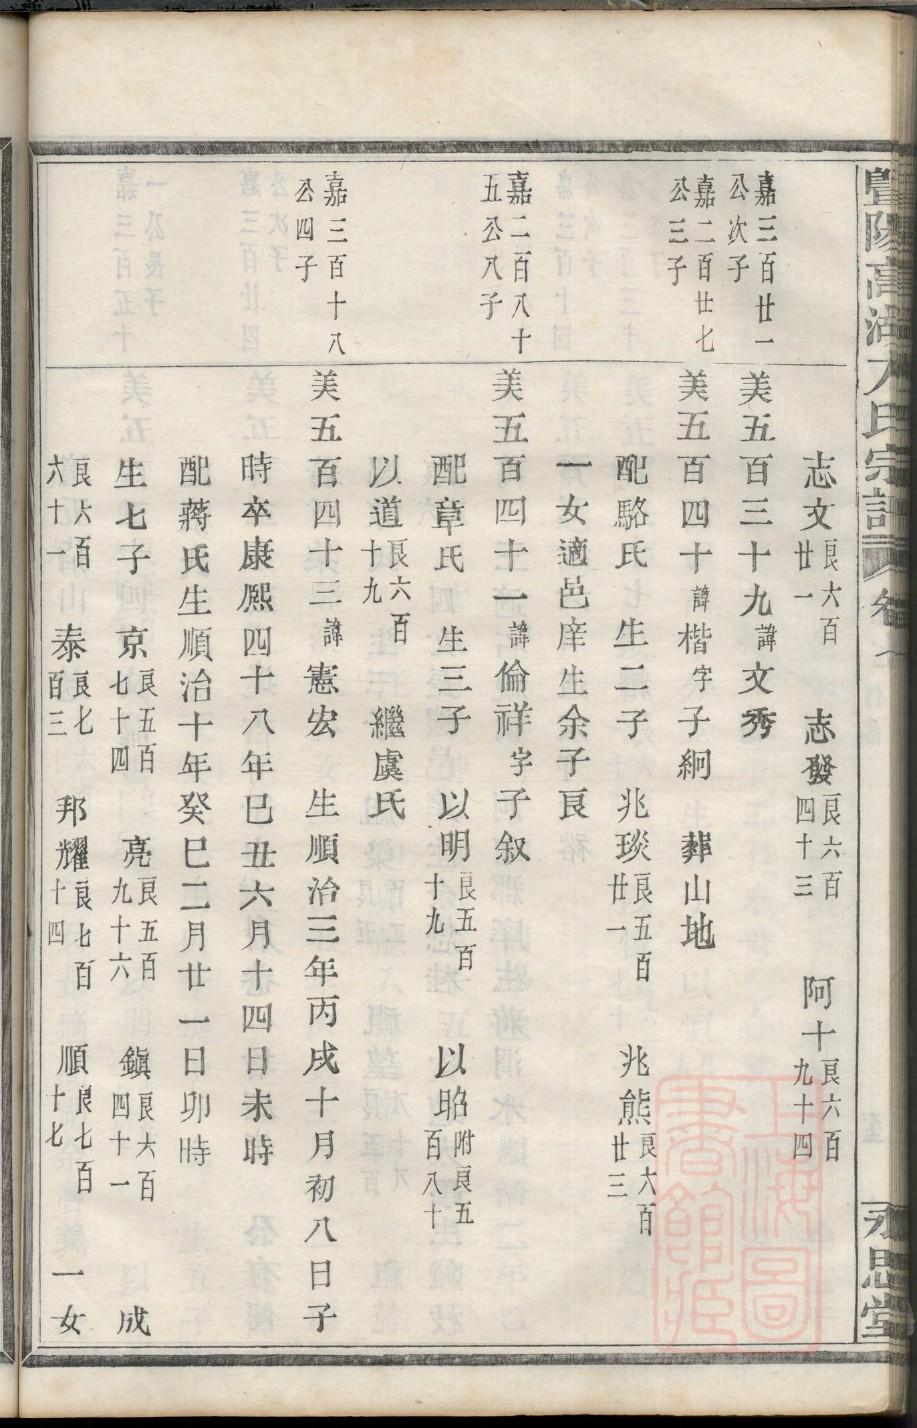 暨陽高湖 氏宗譜 卷 永思堂
志文良六百廿一 志發良六百四十三 阿十良六百九十四
嘉三百廿一公次子 美五百三十九諱文秀
嘉二百廿七公三子 美五百四十諱楷字子絅 葬山地
配駱氏 生二子 兆琰良五百廿一 兆熊良六百廿三
一女適邑庠生余子良
嘉二百八十五公八子 美五百四十一諱倫祥字子叙
配章氏 生三子 以明良五百十九 以昭附良五百八十
以道良六百十九 繼虞氏
嘉三百十八公四子 美五百四十三諱憲宏 生順治三年丙戌十月初八日子
時卒康熙四十八年巳丑六月十四日未時
配蔣氏生順治十年癸巳二月廿一日卯時
生七子 京良五百七十四 亮良五百九十六 鎮良六百四十一 成
良六百六十一 泰良七百三 邦耀良七百十四 順良七百十七 一女
上海圖書館藏